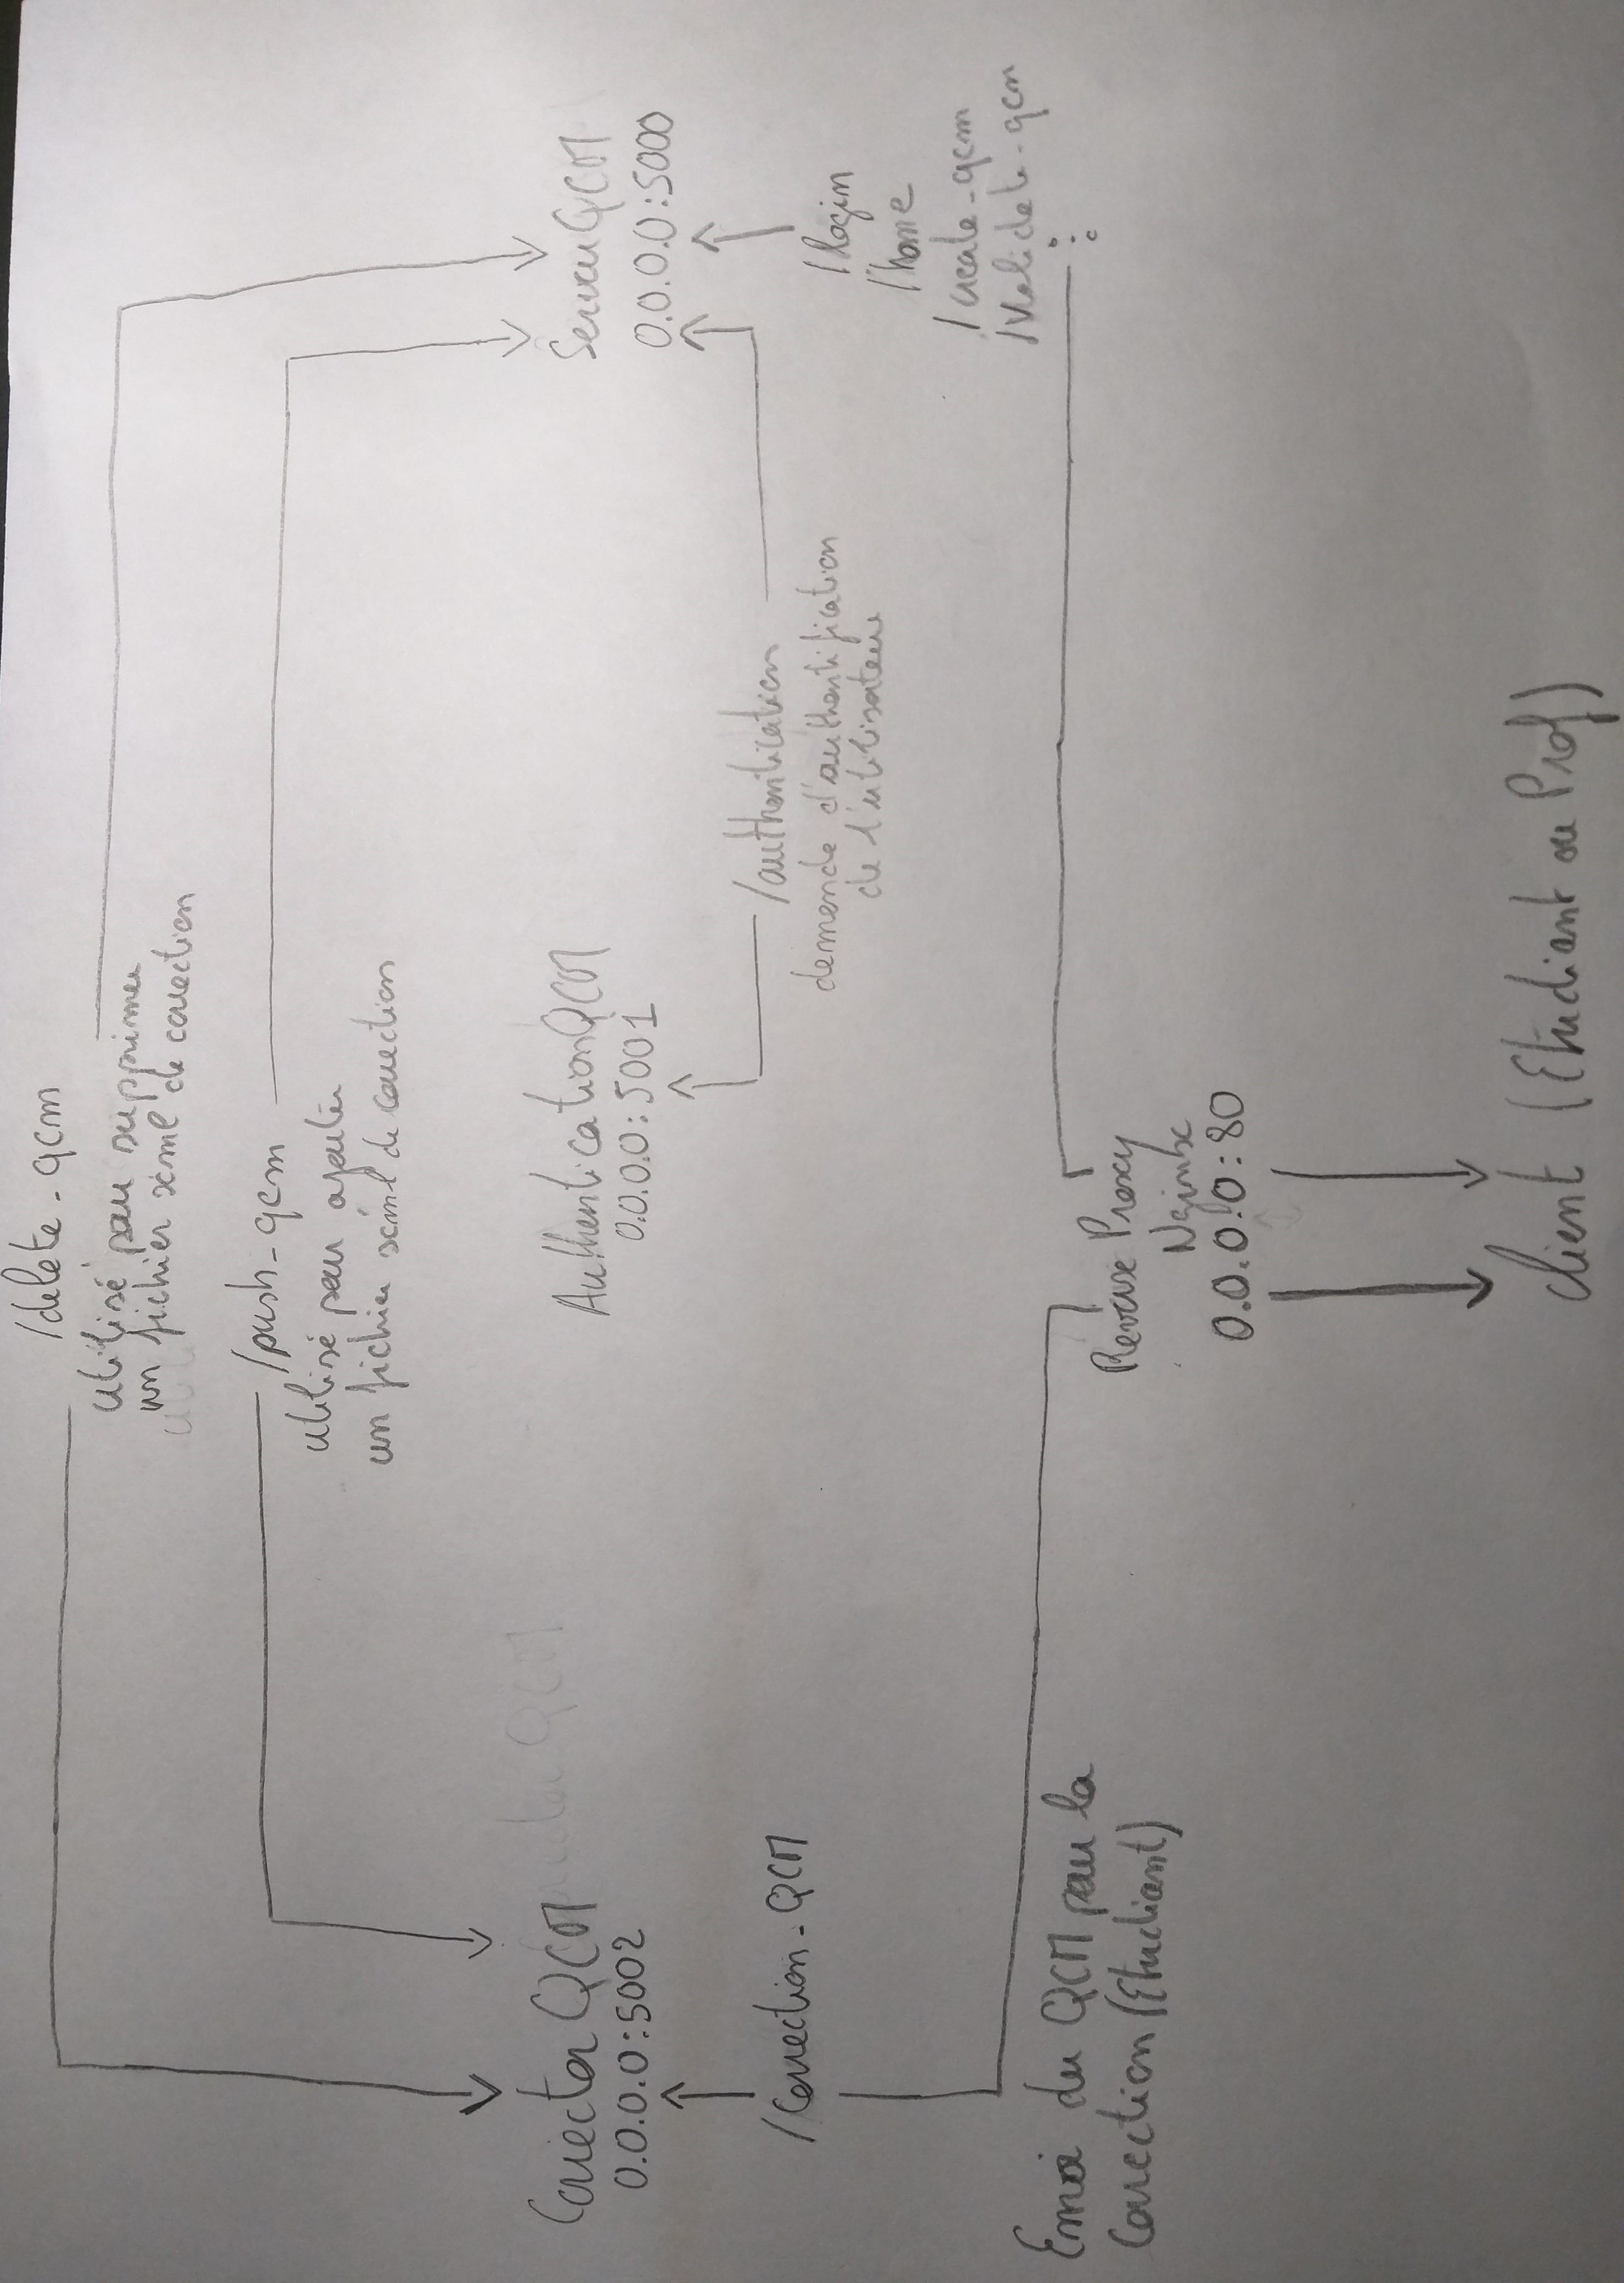 /delete-qcm
utilisé pour supprimer
un fichier xml de correction
/push-qcm
utilisé pour ajouter
un fichier xml de correction
Corrector QCM
0.0.0.0:5002
Authentication QCM
0.0.0.0:5001
Serveur QCM
0.0.0.0:5000
/Correction-QCM
/authentication
demande d'authentification
de l'utilisateur
/login
/home
/create-qcm
/validate-qcm
Envoi du QCM pour la
Correction (Etudiant)
Reverse Proxy
0.0.0.0:80
Client (Etudiant ou Prof)